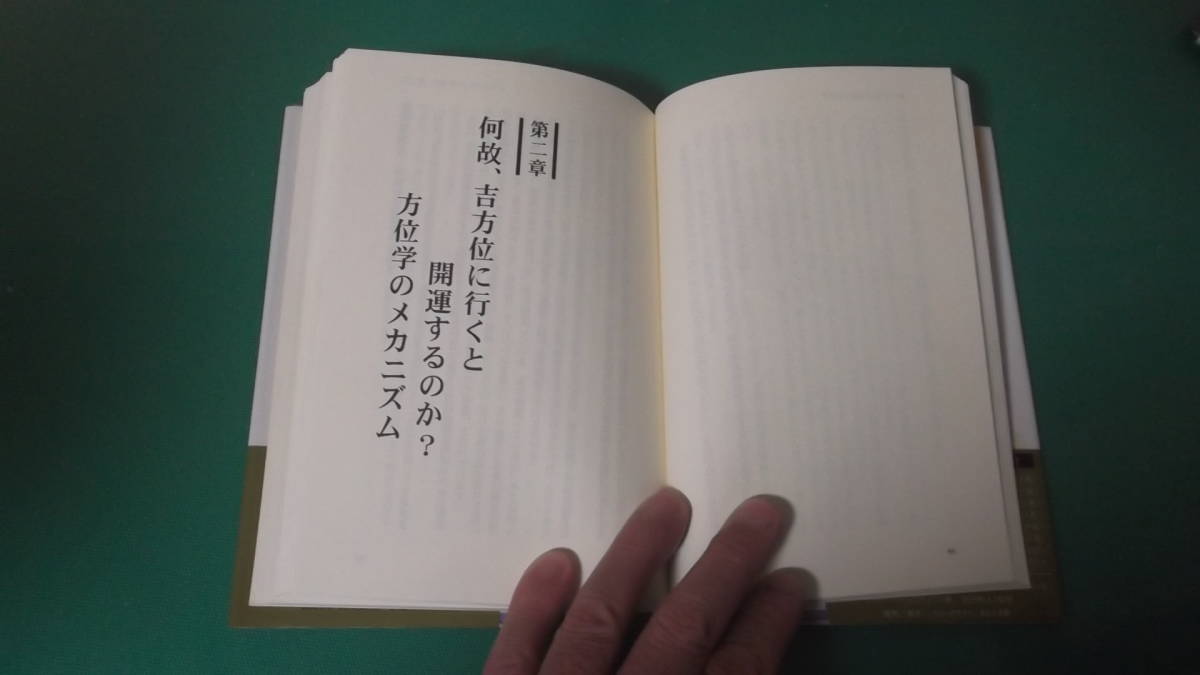 第二章
何故、吉方位に行くと
開運するのか?
方位学のメカニズム